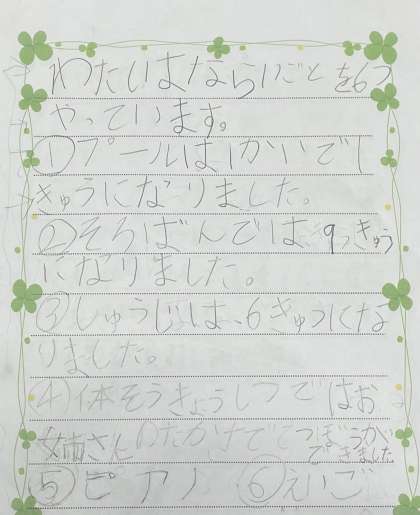 わたしはならいごとを6つ
やっています。
①プールは1かいでし
きゅうになりました。
②そろばんでは9きゅう
になりました。
③しゅうじは、6きゅうにな
りました。
④体そうきょうしつではお
姉さん
できました
⑤ピアノ ⑥えいご